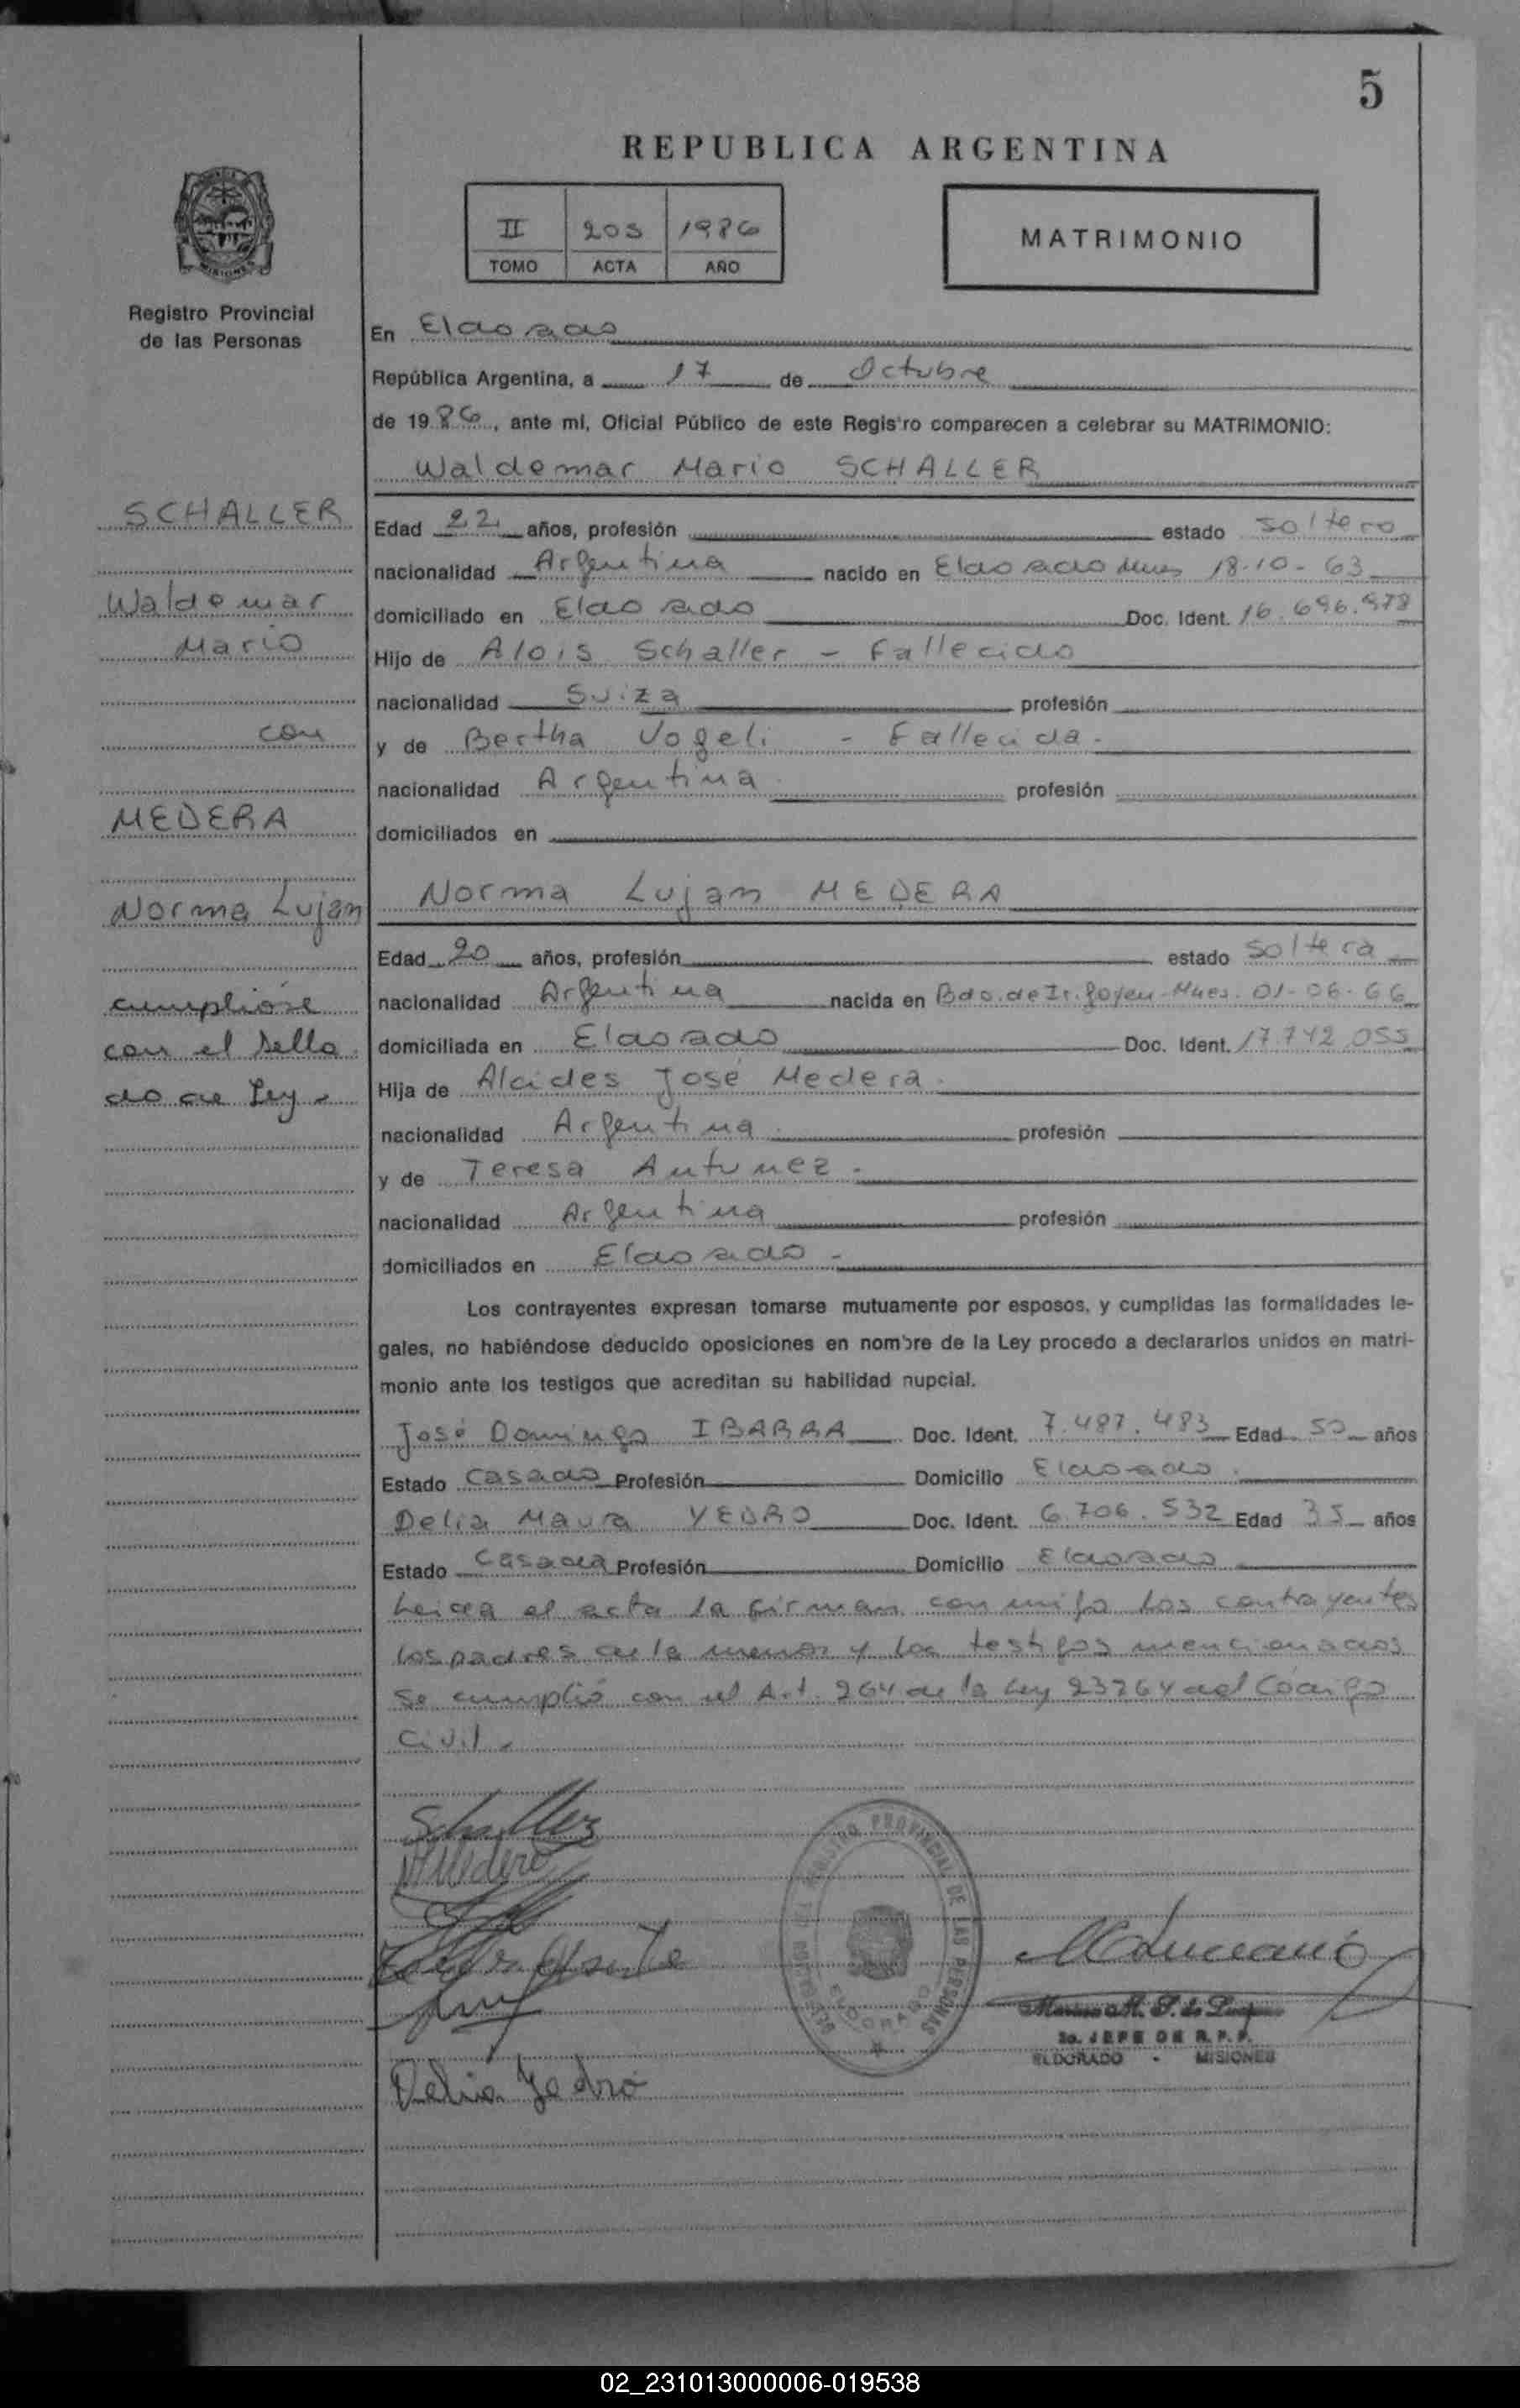 5
REPUBLICA ARGENTINA
II 205 1986
TOMO ACTA AÑO
MATRIMONIO
MISIONES
Registro Provincial
de las Personas
En Eldorado
República Argentina, a 17 de Octubre
de 1986, ante mí, Oficial Público de este Registro comparecen a celebrar su MATRIMONIO:
Waldemar Mario SCHALLER
SCHALLER
Waldemar
Mario
con
MEDERA
Norma Lujan
cumplióse
con el sella
do de Ley
Edad 22 años, profesión estado soltero
nacionalidad Argentina nacido en Eldorado Mnes 18-10-63
domiciliado en Eldorado Doc. Ident. 16.696.978
Hijo de Alois Schaller - Fallecido
nacionalidad Suiza profesión
y de Bertha Vogeli - Fallecida.
nacionalidad Argentina profesión
domiciliados en
Norma Lujan MEDERA
Edad 20 años, profesión estado soltera
nacionalidad Argentina nacida en Bdo. de Ir. goyen-Mnes. 01-06-66
domiciliada en Eldorado Doc. Ident. 17.742.055
Hija de Alcides José Medera.
nacionalidad Argentina profesión
y de Teresa Antunez.
nacionalidad Argentina profesión
domiciliados en Eldorado-
Los contrayentes expresan tomarse mutuamente por esposos, y cumplidas las formalidades le-
gales, no habiéndose deducido oposiciones en nombre de la Ley procedo a declararlos unidos en matri-
monio ante los testigos que acreditan su habilidad nupcial.
José Domingo IBARRA Doc. Ident. 7.487.483 Edad 50 años
Estado Casado Profesión Domicilio Eldorado.
Delia Maura YEDRO Doc. Ident. 6.706.532 Edad 35 años
Estado Casada Profesión Domicilio Eldorado
Leida el acta la firman conmigo los contrayentes
los padres de la menor y los testigos mencionados
se cumplió con el Art. 264 de la Ley 23264 del Código
Civil
Schaller
NMedera
Delia Yedro
REGISTRO PROVINCIAL DE LAS PERSONAS
ELDORADO
2o. JEFE DE R.P.P.
ELDORADO - MISIONES
02_231013000006-019538